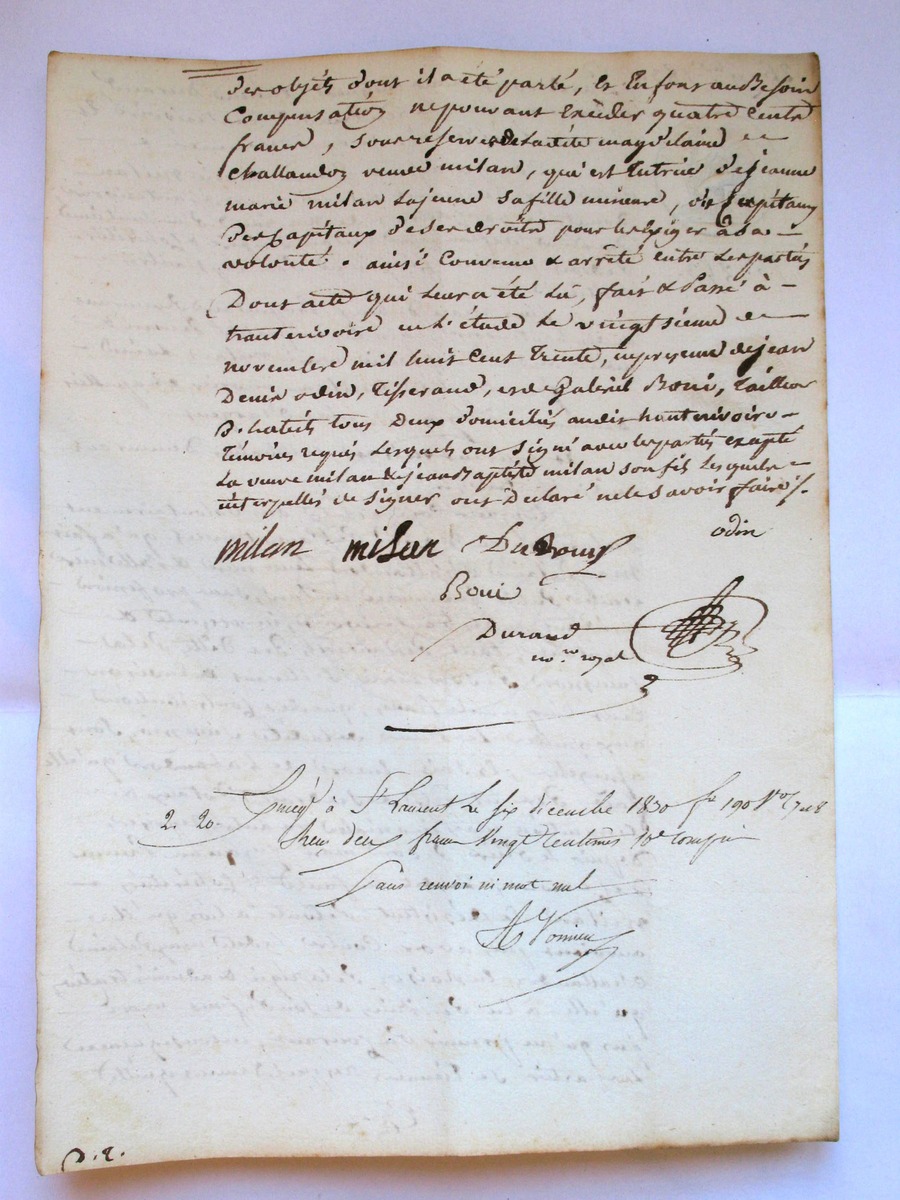 des objets dont il a été parlé, et En font au Besoin
Compensation ne pouvant Excéder quatre Cents
francs, sous réserve de ladite magdelaine
challandon veuve milan, qui est tutrice de jeanne
marie milan la jeune sa fille mineure,
des Capitaux de ses droits pour les Exiger à sa
volonté. ainsi Convenu & arrêté entre les parties
Dont acte qui leur a été lu, fait & Passé à
hauterivoire en l'étude le vingt sième
novembre mil huit cent trente, en présence de jean
Denis odin, Tisserand, et de Gabriel Boni, Tailleur
D'habits tous Deux Domiciliés audit hauterivoire
Témoins requis lesquels ont signé avec les parties excepté
La veuve milan & jean Baptiste milan son fils lesquels
interpellés de signer ont Déclaré ne le savoir faire /.
milan milan odin
Boni
Durand
no.re royal
Enreg. à St Laurent le six décembre 1830 fo 190 Vo
2. 20. Reçu deux francs vingt centimes 10e compris
Sans renvoi ni mot nul
D. 2.